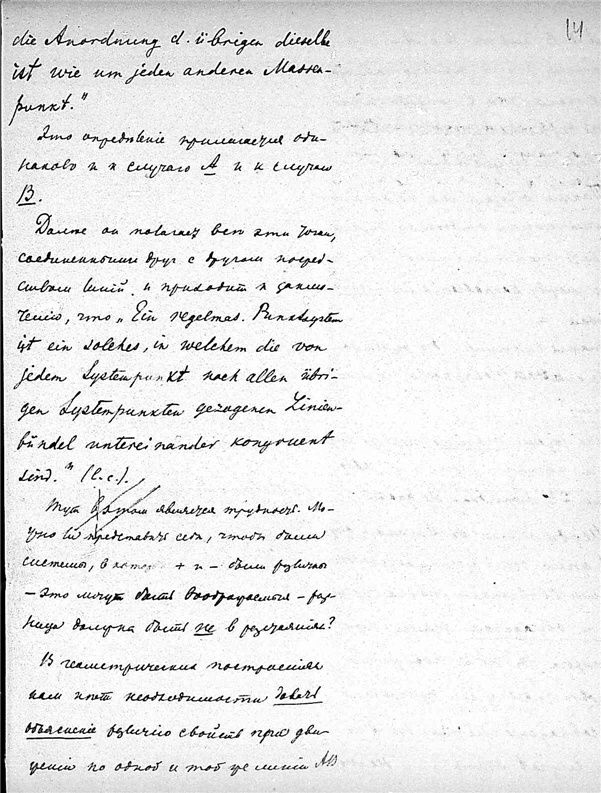 14
die Anordnung d. übrigen dieselbe
ist wie um jeden anderen Massen-
punkt."
Это определение прилагается оди-
наково и к случаю А и к случаю
В.
Далее он полагает все эти точки,
соединенными друг с другом посред-
ством линий и приходит к заклю-
чению, что „Ein regelmäs. Punktsystem
ist ein solches, in welchem die von
jedem Systempunkt nach allen übri-
gen Systempunkten gezogenen Linien-
bündel untereinander kongruent
sind." (l.c.).
Тут в этом является трудность. Мо-
жно ли представить себе, чтобы были
системы, в котор. + и – были различны
– это могут быть воображаемыя – раз-
ница должна быть не в разстояниях?
В геометрических построениях
нам нет необходимости давать
объяснение различию свойств при дви-
жении по одной и той же линии АВ